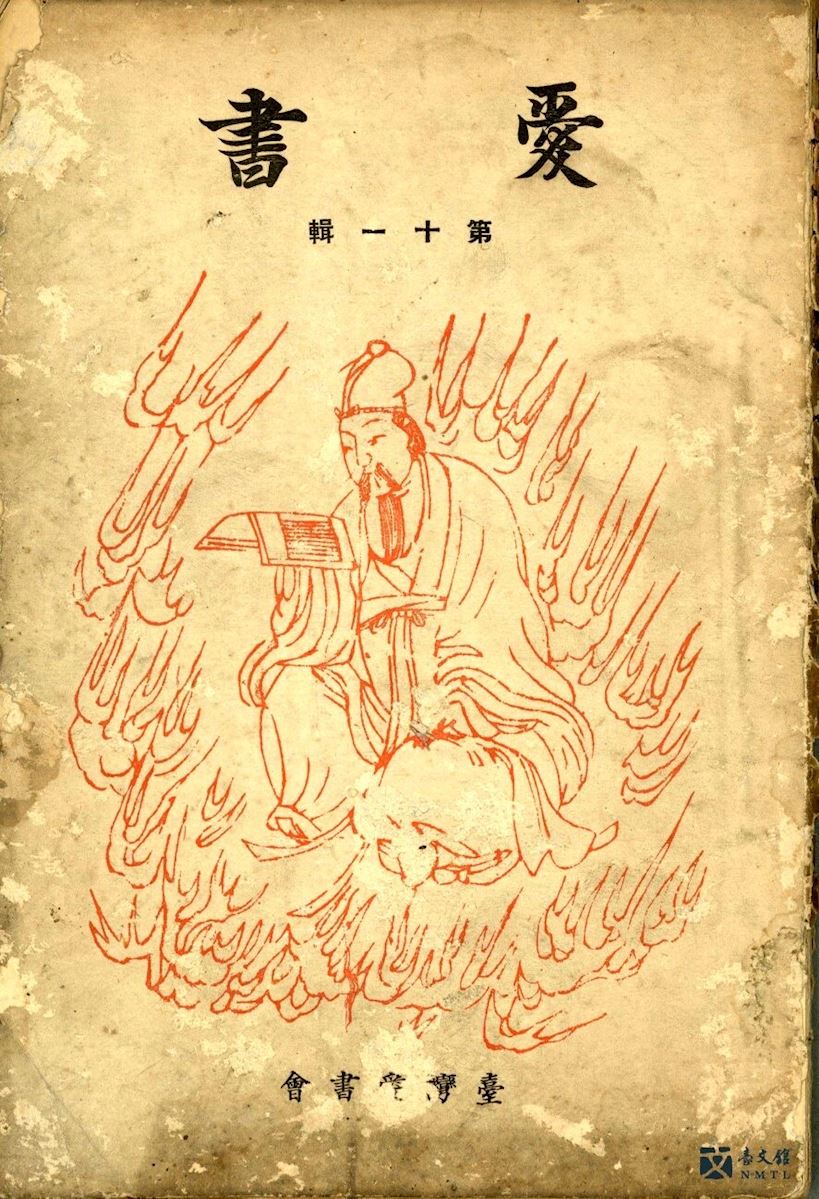 愛書
第十一輯
臺灣愛書會
臺文館
NMTL